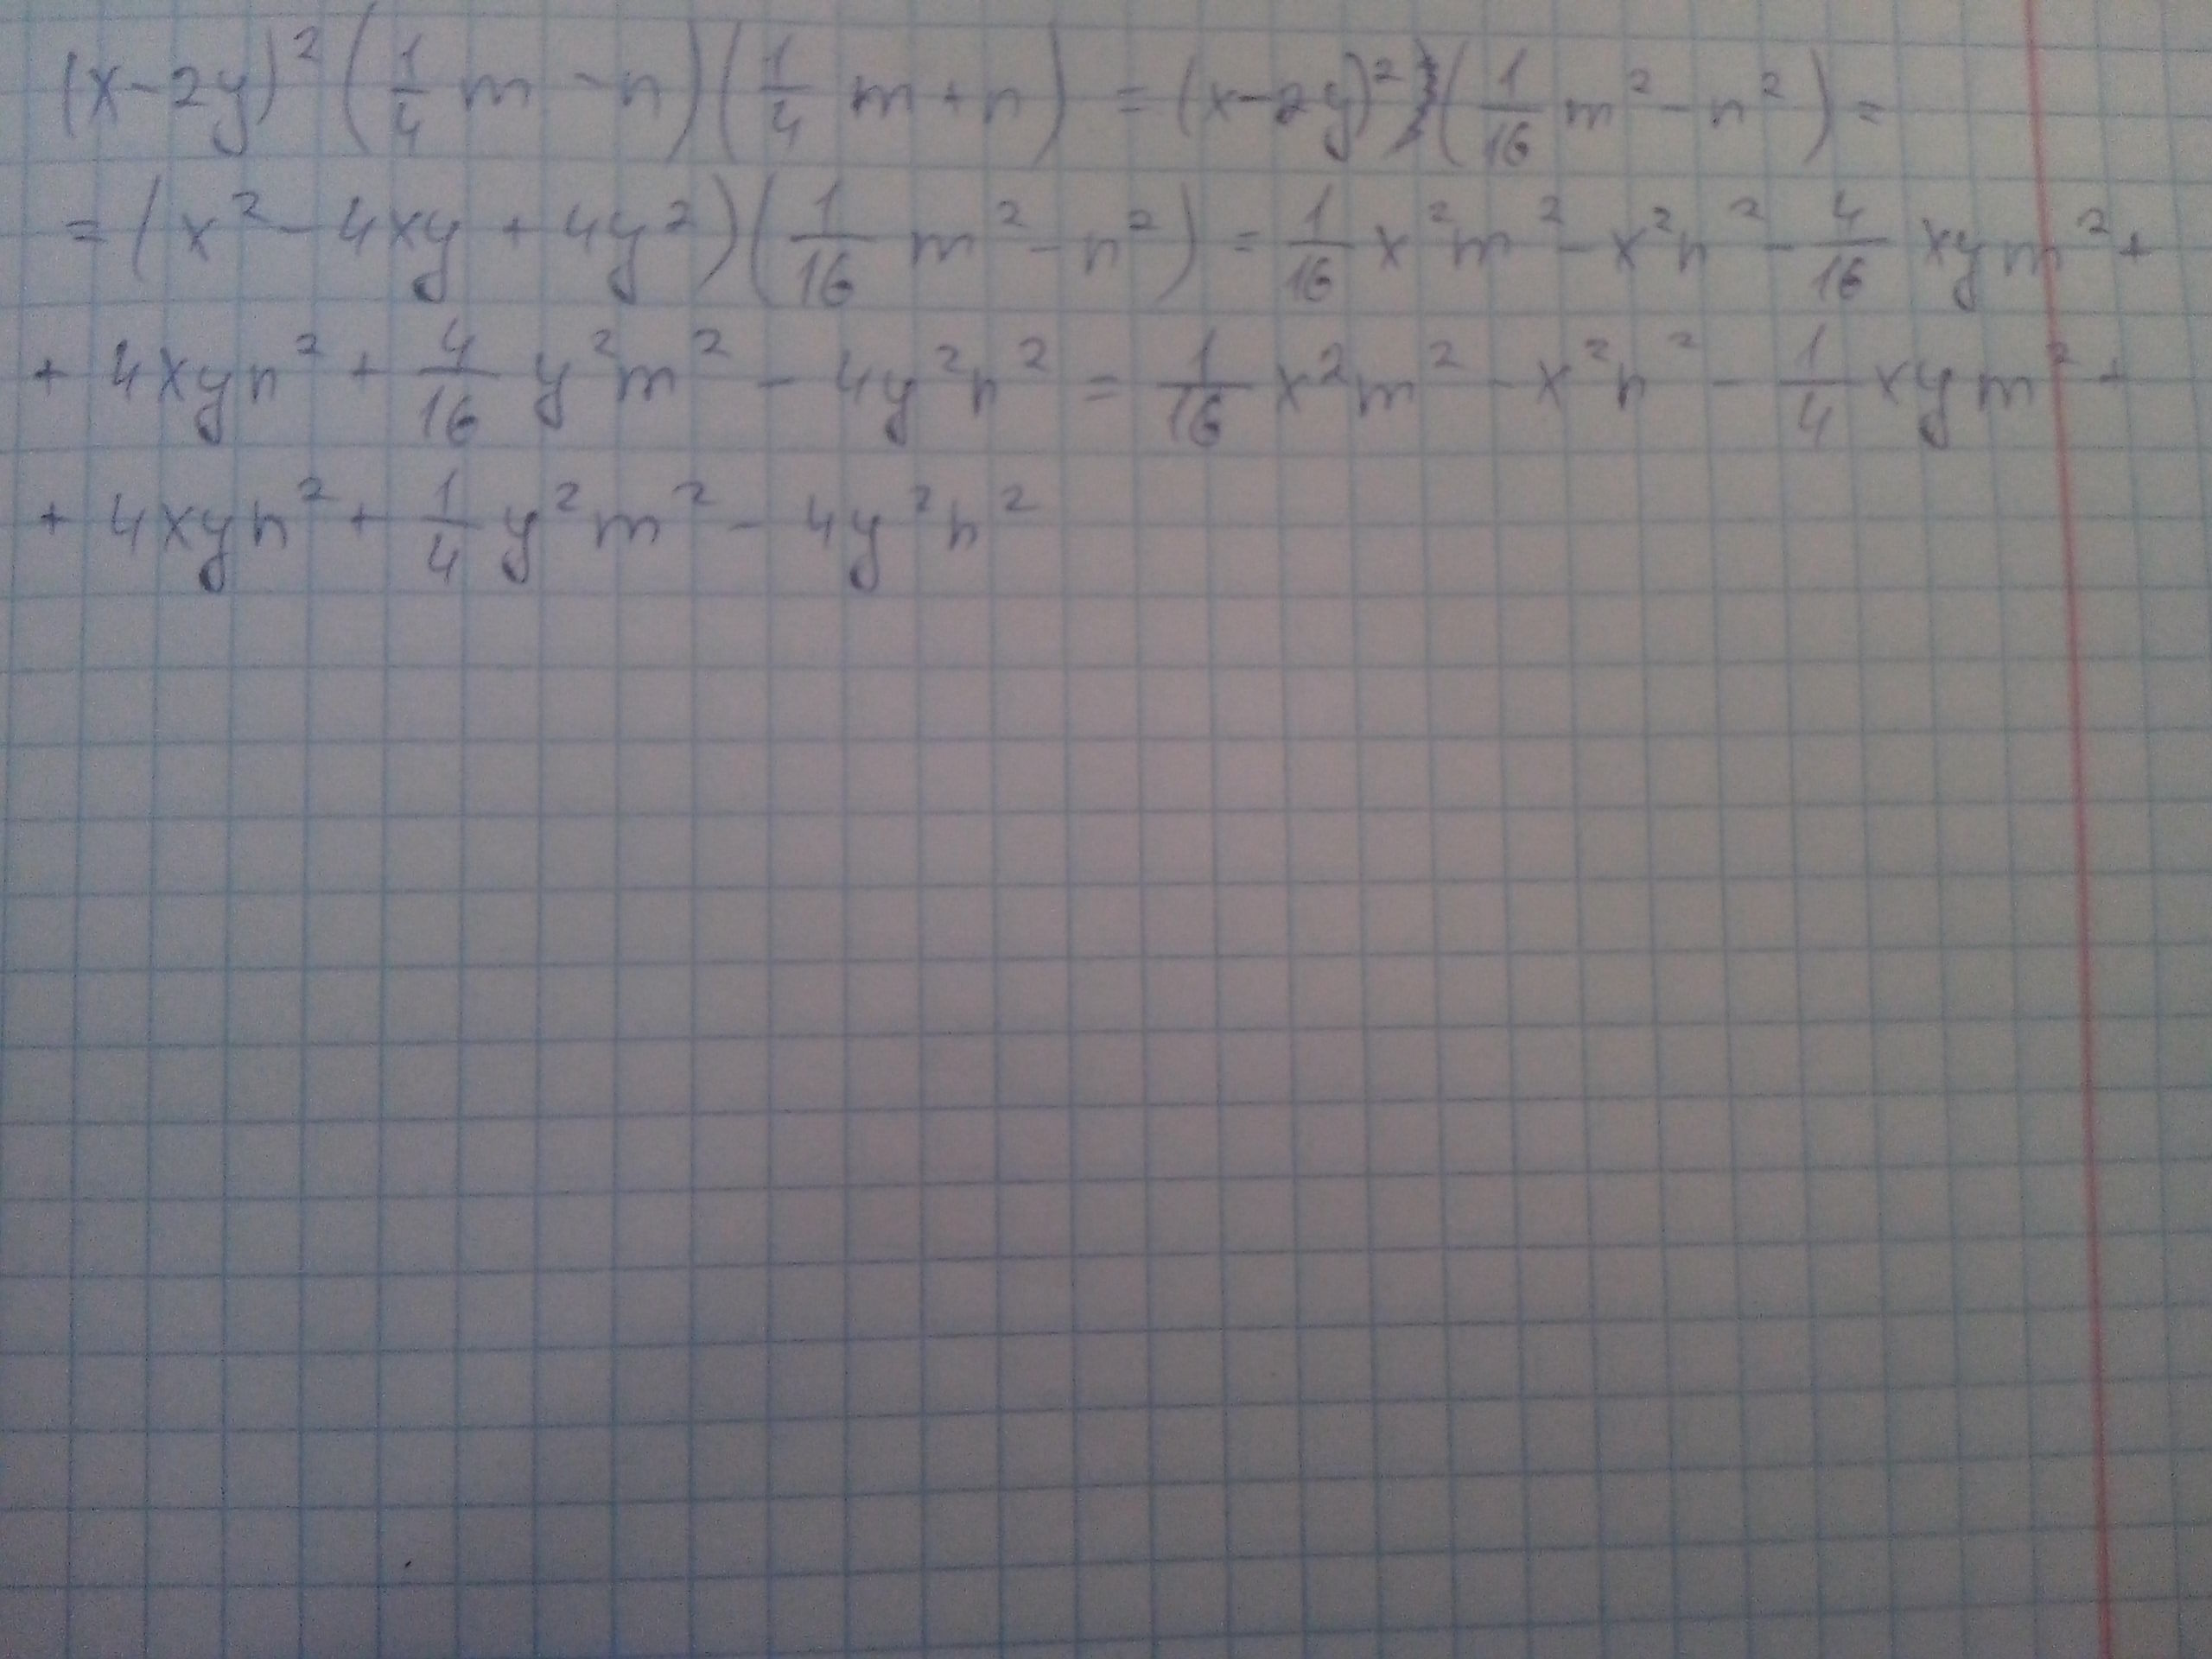 (x-2y)² (1/4 m - n)(1/4 m + n) = (x-2y)² (1/16 m² - n²) =
= (x² - 4xy + 4y²)(1/16 m² - n²) = 1/16 x²m² - x²n² - 4/16 xym² +
+ 4xyn² + 4/16 y²m² - 4y²n² = 1/16 x²m² - x²n² - 1/4 xym² +
+ 4xyn² + 1/4 y²m² - 4y²n²